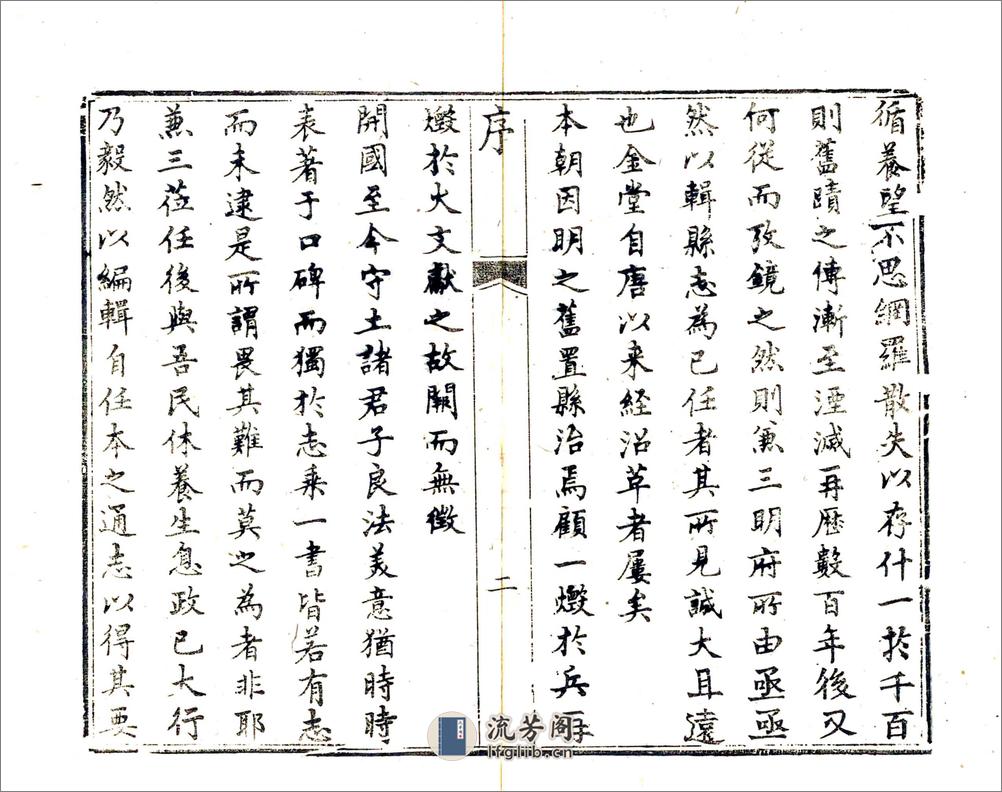 循養望不思網羅散失以存什一於千百
則舊蹟之傳漸至湮滅再歷數百年後又
何從而攷鏡之然則兼三明府所由亟亟
然以輯縣志為己任者其所見誠大且遠
也金堂自唐以来経沿革者屢矣
本朝因明之舊置縣治焉顧一燬於兵再
序
二
燬於火文獻之故闕而無徵
開國至今守土諸君子良法美意猶時時
表著于口碑而獨於志乗一書皆若有志
而未逮是所謂畏其難而莫之為者非耶
兼三莅任後與吾民休養生息政已大行
乃毅然以編輯自任本之通志以得其要
流芳阁
lfglib.cn